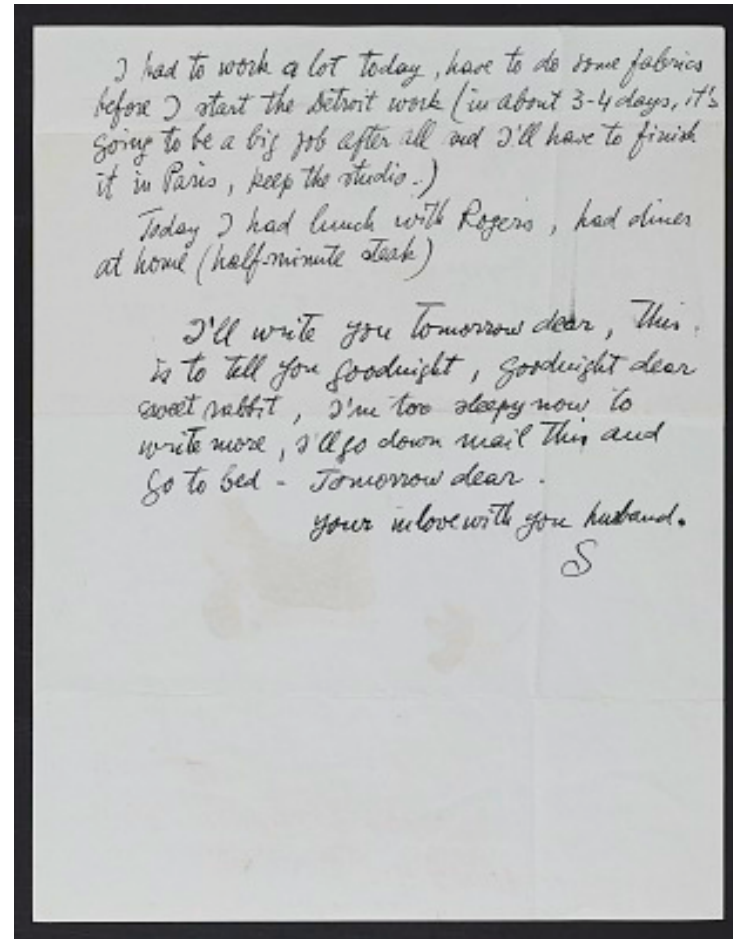 I had to work a lot today, have to do some fabrics
before I start the Detroit work (in about 3-4 days, it's
going to be a big job after all and I'll have to finish
it in Paris, keep the studio..)
Today I had lunch with Rogers, had diner
at home (half-minute steak)
I'll write you tomorrow dear, This
is to tell you goodnight, goodnight dear
sweet rabbit, I'm too sleepy now to
write more, I'll go down mail this and
go to bed - Tomorrow dear.
your in love with you husband.
S